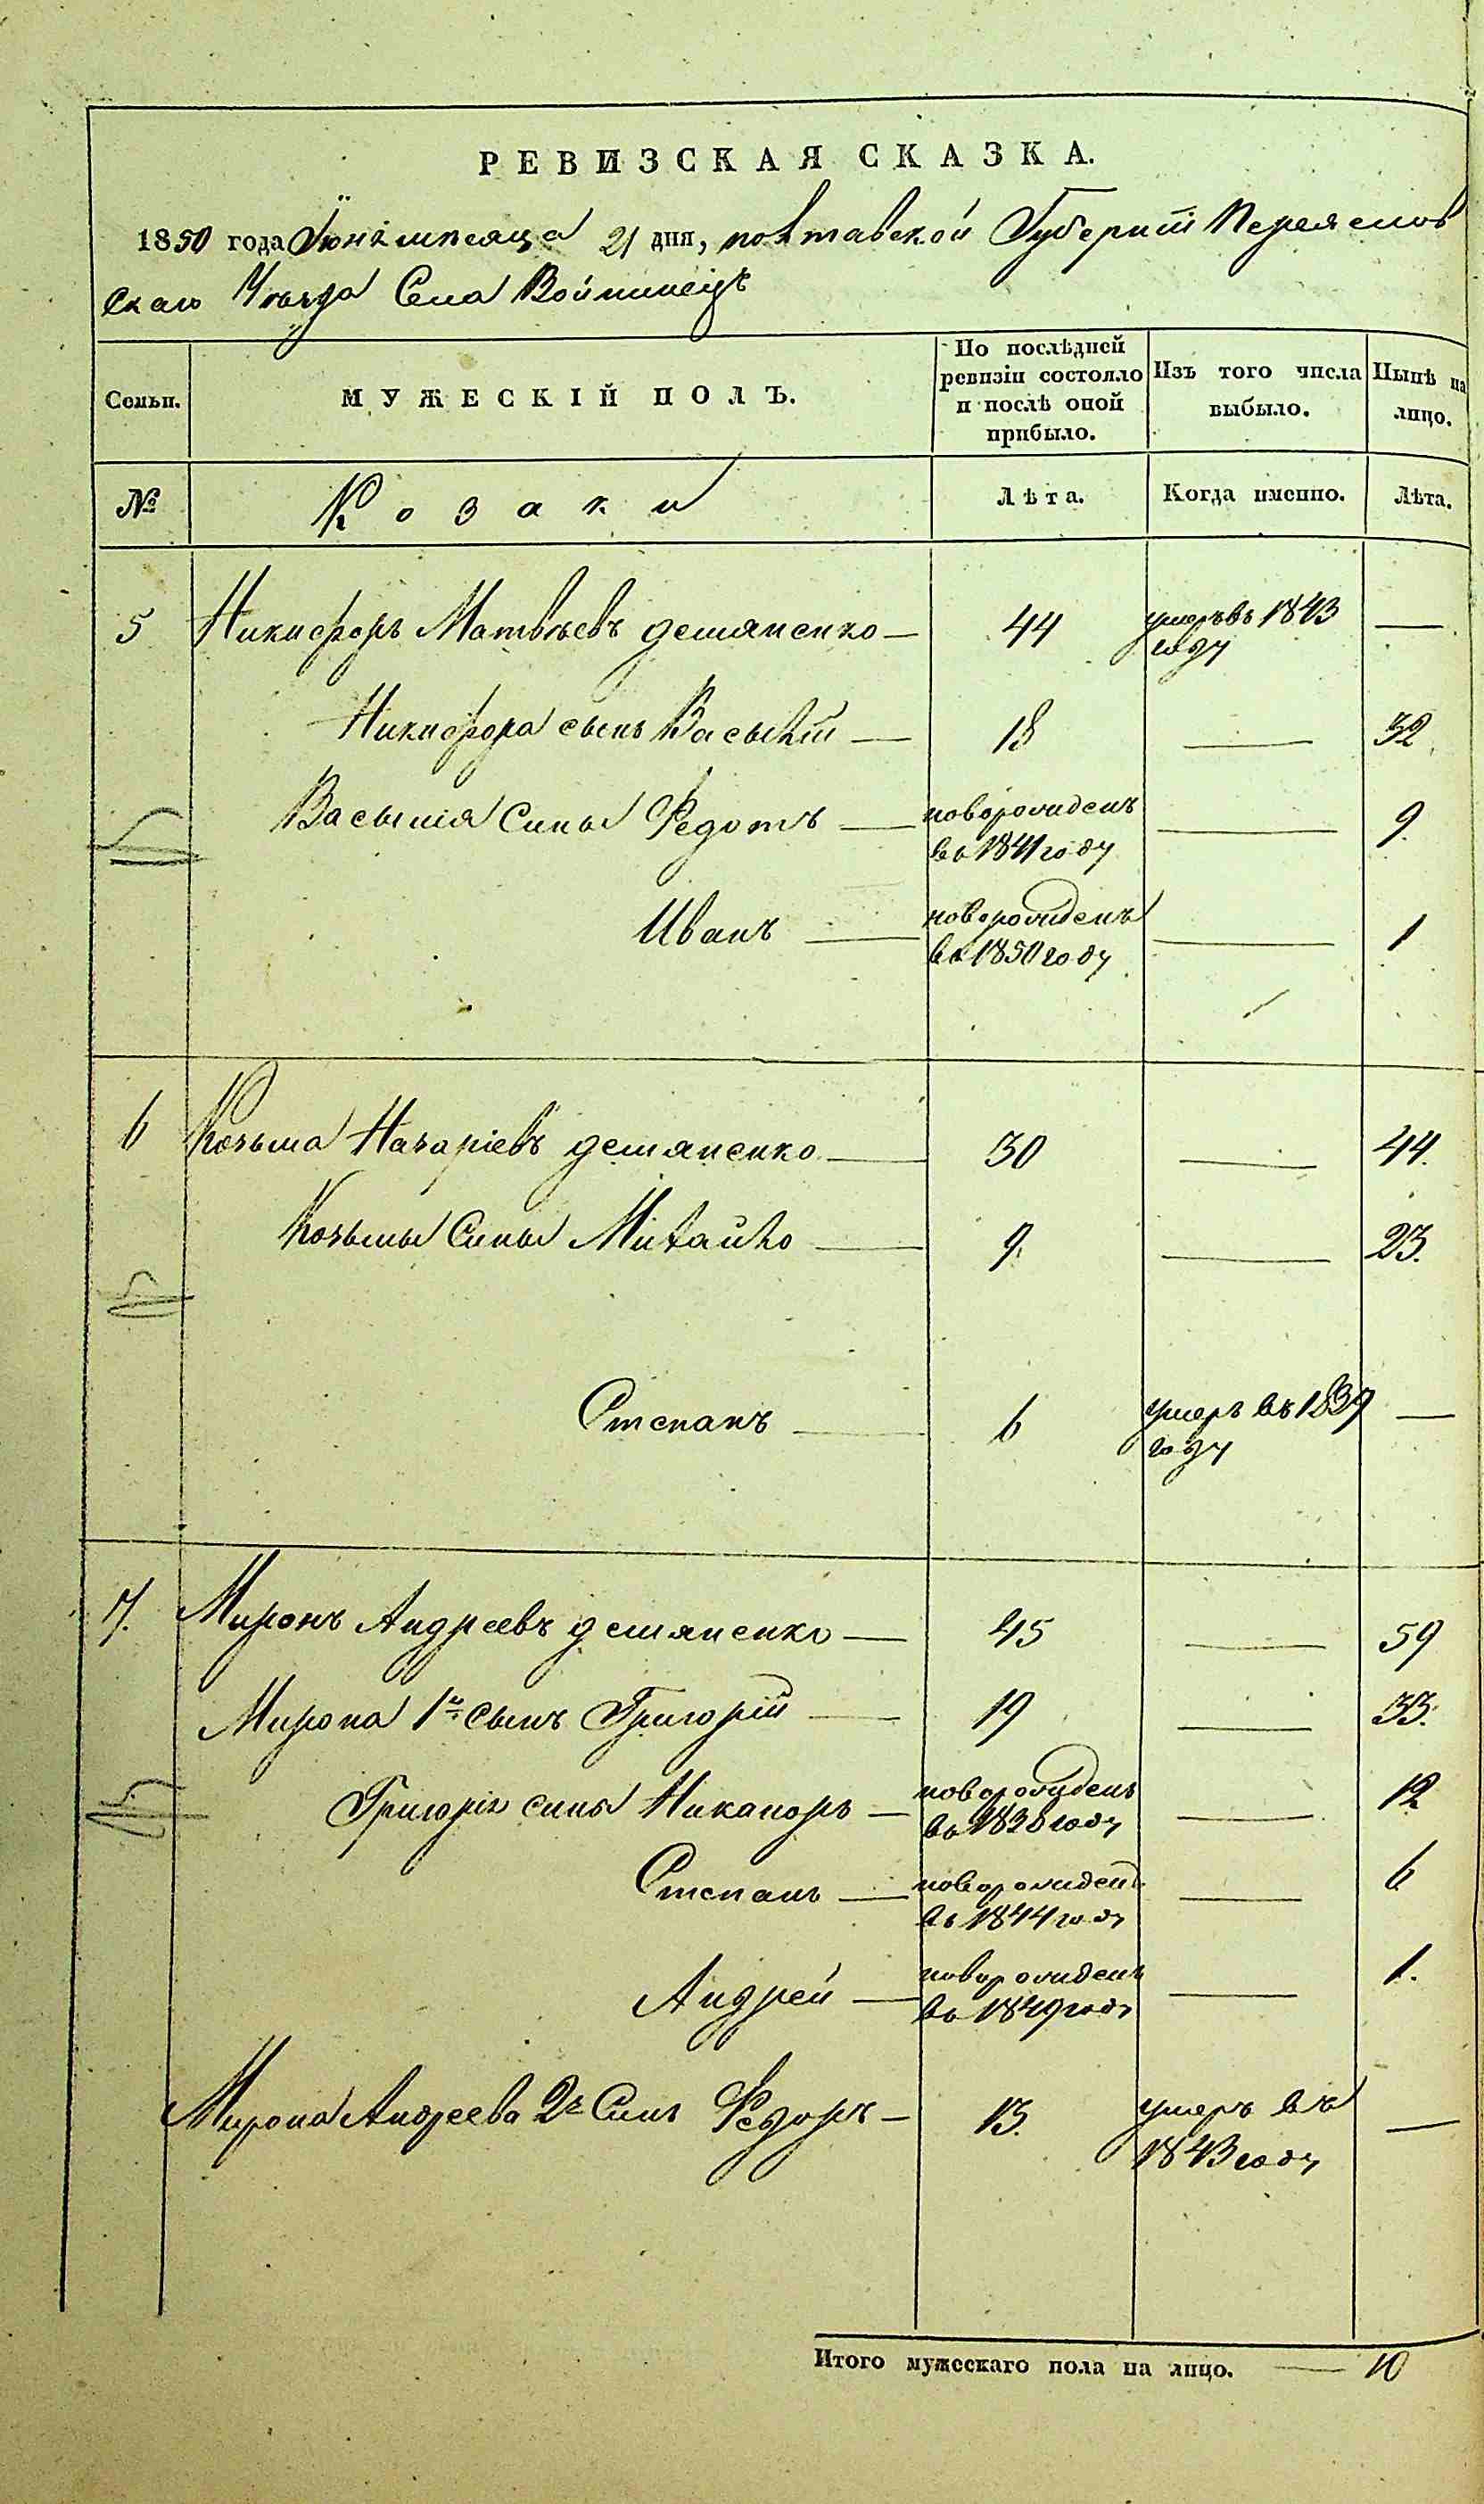 РЕВИЗСКАЯ СКАЗКА.
1850 года Іюня мѣсяца 21 дня, полтавской Губерніи Переяслов
скаго Уѣзда Села Войтовецъ
Семьи.
МУЖЕСКІЙ ПОЛЪ.
По послѣдней
ревизіи состояло
и послѣ оной
прибыло.
Изъ того числа
выбыло.
Нынѣ на
лицо.
№
Козаки
Лѣта.
Когда именно.
Лѣта.
5 Никифоръ Матвѣевъ демяненко — 44 умеръ въ 1843 —
году
Никифора сынъ Василій — 18 — 32
Василія сины Федотъ — новорожденъ — 9
въ 1841 году
Иванъ — новорожденъ — 1
въ 1850 году
6 Козьма Назаріевъ демяненко — 30 — 44.
Козьмы Сины Михайло — 9. — 23.
Степанъ — 6 умеръ въ 1839 —
году
7. Миронъ Андреевъ демяненко — 45 — 59
Мирона 1й сынъ Григорій — 19 — 33.
Григорія сины Никаноръ — новорожденъ — 12
въ 1838 году
Степанъ — новорожденъ — 6
въ 1844 году
Андрей — новорожденъ — 1.
въ 1849 году
Мирона Андреева 2й Синъ Федоръ — 13. умеръ въ —
1843 году
Итого мужескаго пола на лицо. — 10